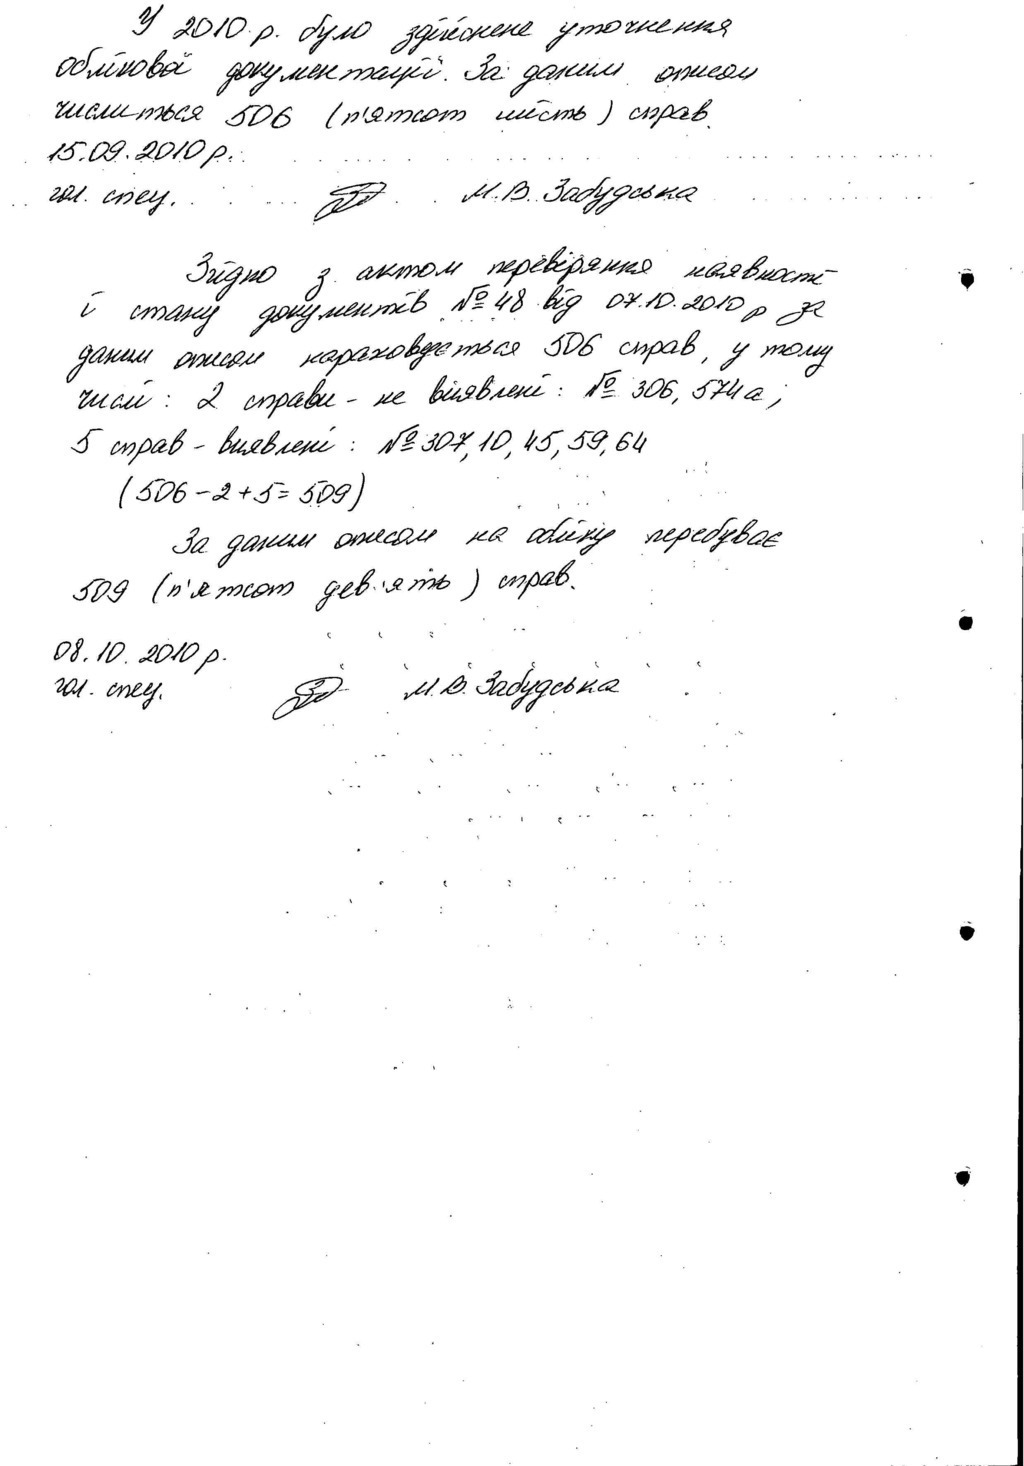 У 2010 р. було здійснене уточнення
облікової документації. За даним описом
числиться 506 (п'ятсот шість) справ.
15.09.2010 р.
гол. спец. М.В. Забудська
Згідно з актом перевіряння наявності
і стану документів № 48 від 07.10.2010 р за
даним описом нараховується 506 справ, у тому
числі: 2 справи - не виявлені: № 306, 574а;
5 справ - виявлені: № 307, 10, 45, 59, 64
(506 - 2 + 5 = 509)
За даним описом на обліку перебуває
509 (п'ятсот дев'ять) справ.
08.10.2010 р.
гол. спец. М.В. Забудська